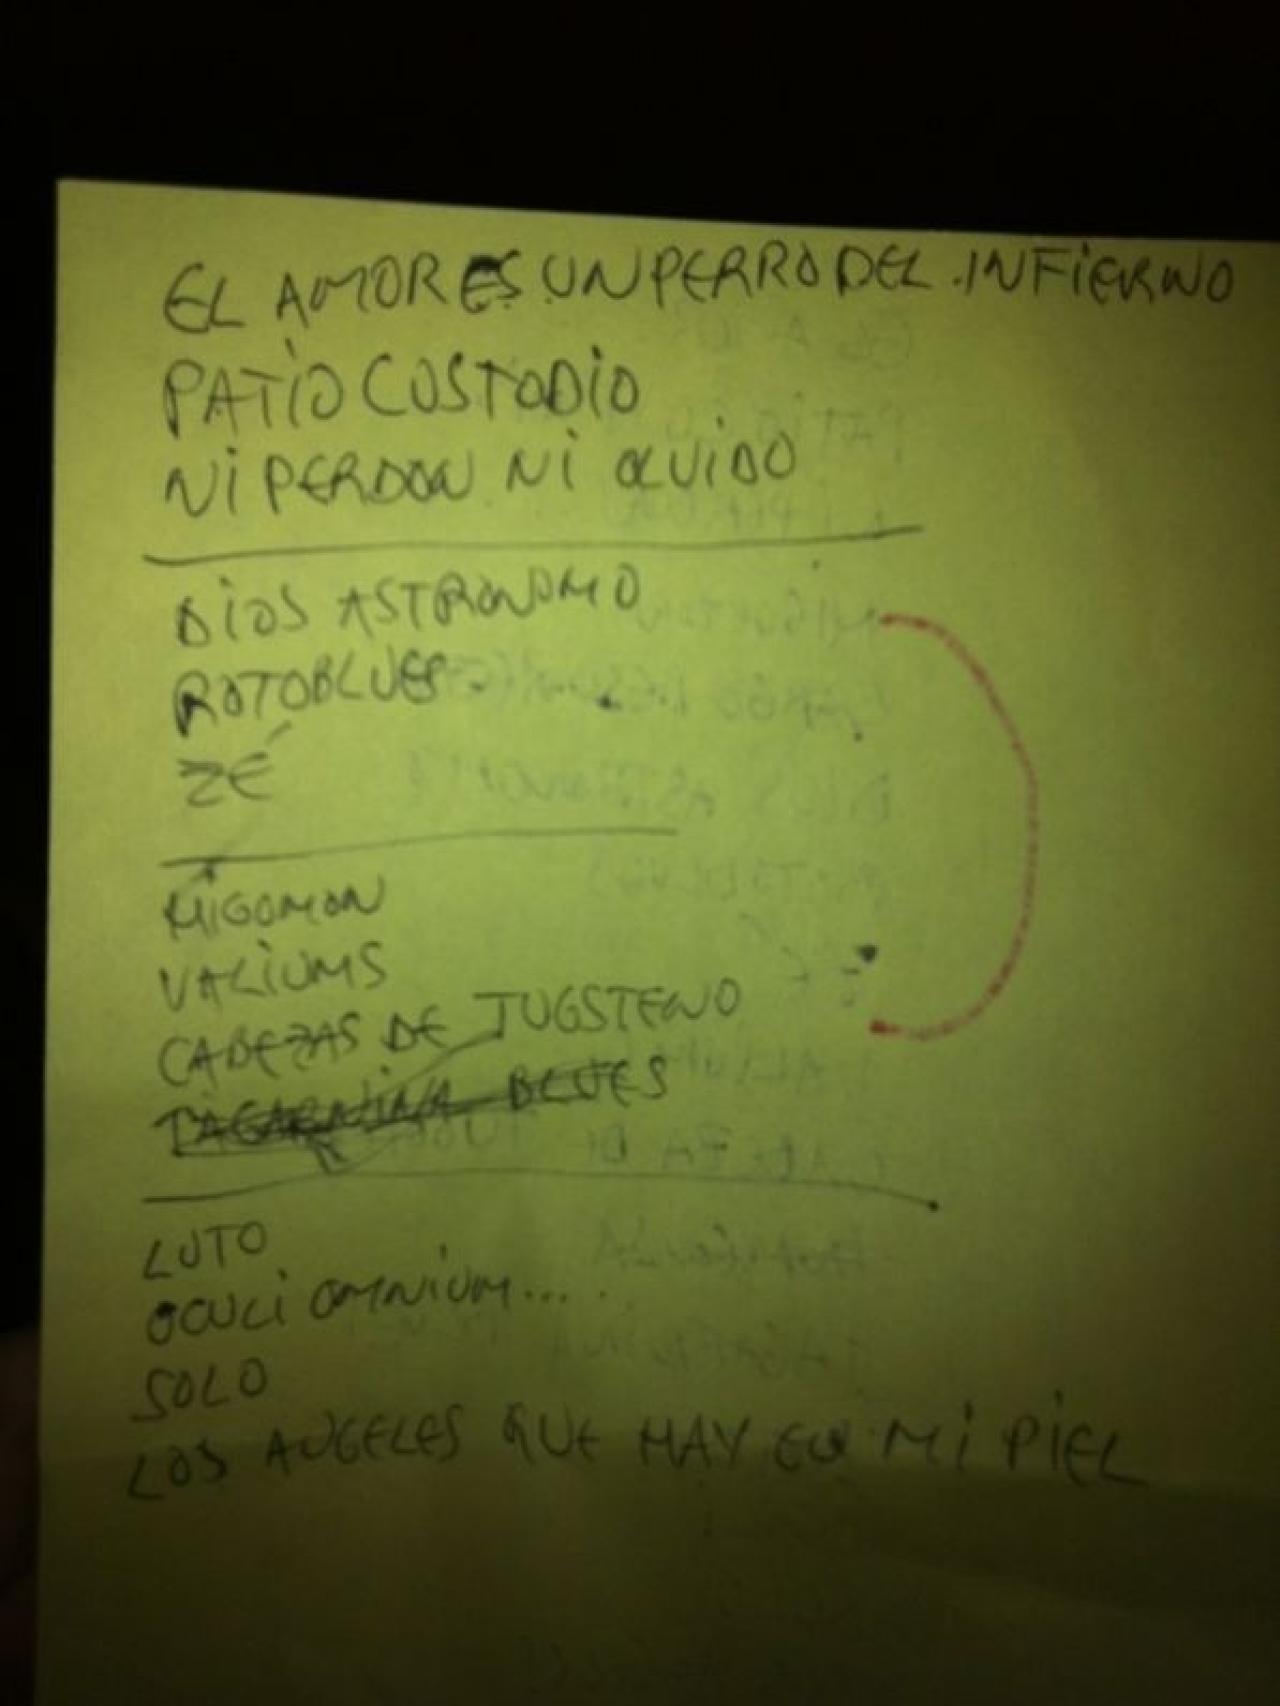 EL AMOR ES UN PERRO DEL INFIERNO
PATIO CUSTODIO
NI PERDON NI OLVIDO
DIOS ASTRONOMO
ROTOBLUES
ZÉ
MIGOMON
VALIUMS
CABEZAS DE TUGSTENO
TAGARNINA BLUES
LUTO
OCULI OMNIUM...
SOLO
LOS ANGELES QUE HAY EN MI PIEL